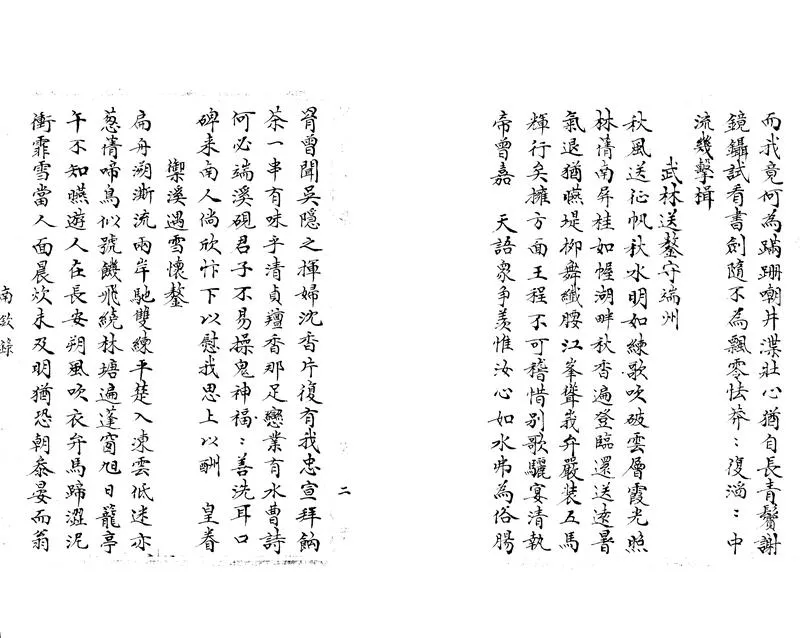 而我竟何為蹣跚嘲井渫壯心猶自長青鬢謝
鏡鑷試看書劍隨不為飄零怯莽：復滔：中
流幾擊揖
武林送鏊守端州
秋風送征帆秋水明如練歌吹破雲層霞光照
林蒨南屏桂如幄湖畔秋香遍登臨還送遠暑
氣退猶曣堤柳舞纖腰江峯聳峩弁嚴裝五馬
輝行矣擁方面王程不可稽惜別歌驪宴清執
帝曾嘉 天語衆爭羨惟汝心如水弗為俗腸
胥曾聞吳隱之揮婦沈香片復有我忠宣拜餉
茶一串有味乎清貞壇香那足戀業有水曹詩
何必端溪硯君子不易操鬼神福：善洗耳口
碑来南人倘欣忭下以慰我思上以酬 皇眷
禦溪遇雪懷鏊
扁舟溯澌流兩岸馳雙練平楚入凍雲低迷亦
葱蒨啼鳥似號饑飛繞林塘遍蓬窗旭日籠亭
午不知曣遊人在長安朔風吹衣弁馬蹄澀泥
衝霏雪當人面晨炊未及明猶恐朝叅晏而翁
二
南
錄